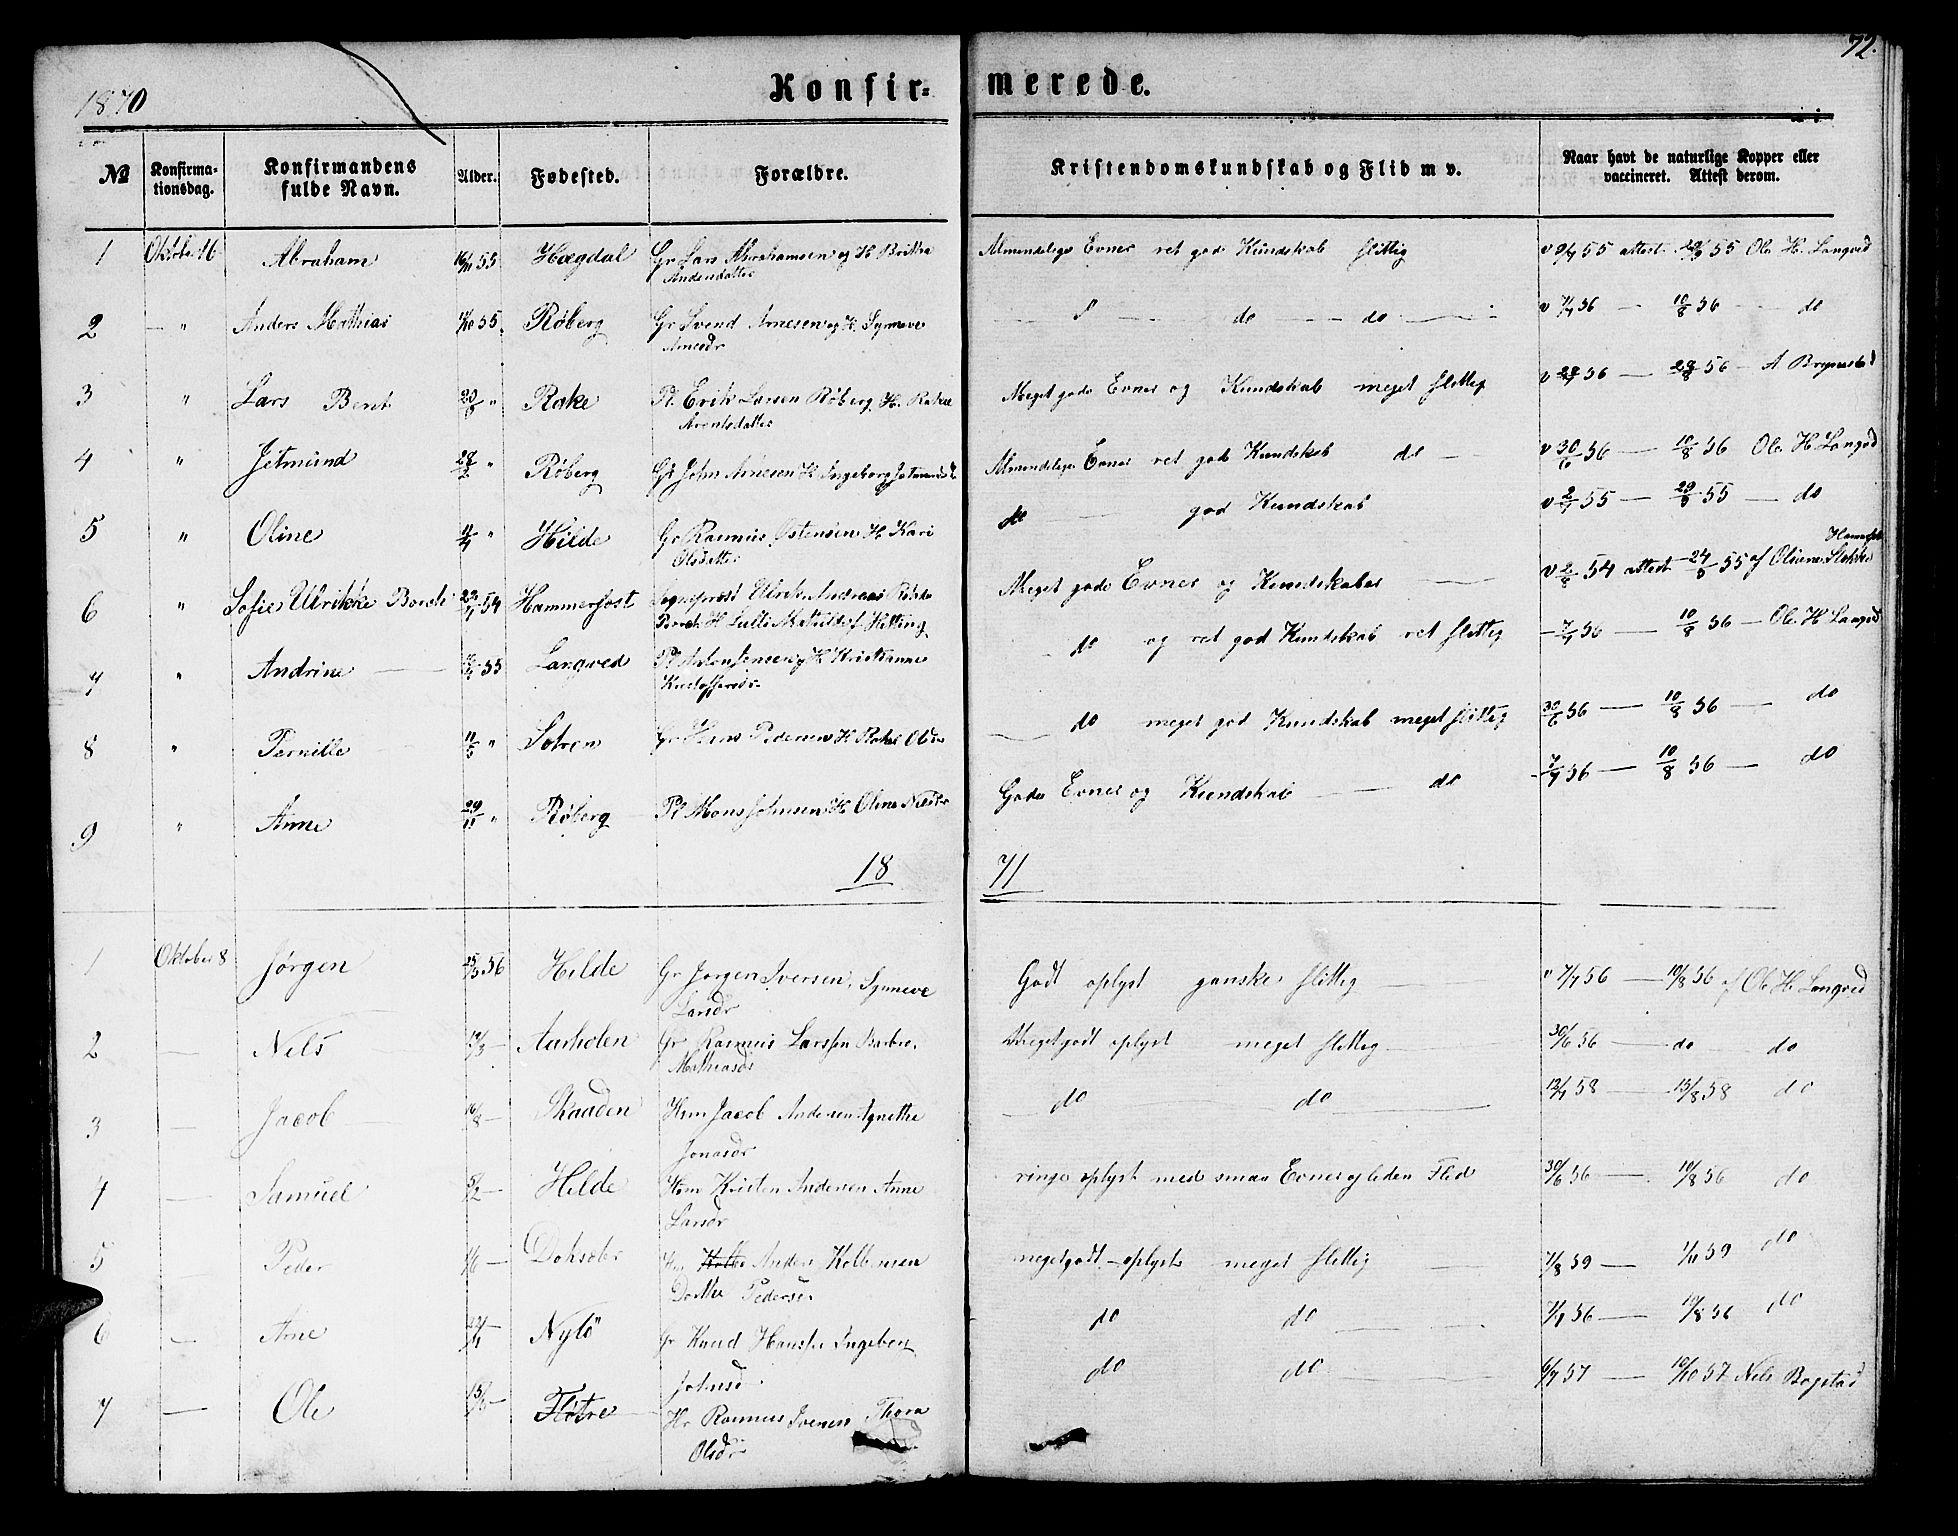 72.
1870
Konfir= merede.
№ Konfirma- tionsdag. Konfirmandens fulde Navn. Alder. Fødested. Forældre. Kristendomskundskab og Flid m v. Naar havt de naturlige Kopper eller vaccineret. Attest derom.
1 Oktober 16 Abraham 16/11 55 Hægdal Gr Lars Abrahamsen og H Britha Andersdatter Almindelige Evner ret god Kundskab flittig v 9/7 55 attest 29/9 55 Ole H. Langved
2 — " Anders Mathias 55 Røberg Gr Svend Arnesen og H. Synneve Arnesdr do — do v 7/7 56 — 10/8 56 — do
3 " Lars Bent 20/8 " Rake P. Erik Larsen Røberg H. Rakel Arentsdatter Meget gode Evner og Kundskab meget flittig v 56 — 56 — A Brynestad
4 " Jetmund 28/2 " Røberg Gr John Arnesen H Ingeborg Jetmundsd Almindelige Evner ret god Kundskab do — v 30/6 56 — 10/8 56 Ole H Langved
5 " Oline 11/4 " Hilde Gr Rasmus Østensen H Kari Olsdatter do — god Kundskab v 2/7 55 — 29/9 55 — do
6 " Sofie Ulrikke Borch 54 Hammerfest Sogneprest Ulrik Andreas Borch H Meget gode Evner og Kundskaber — v 2/8 54 attest 24/8 55 af Oliane Slokke
7 " Andrine — 55 Langved Pl Anton Jensen og H Kristianne Kristoffersdr do og ret god Kundskab ret flittig — 7/7 56 — 10/8 56 — Ole H Langved
8 " Pernille 11/5 " Solren Gr Hans Pedersen H Rakel Olsdr do meget god Kundskab meget flittig 30/6 56 — 10/8 56 — do
9 " Anne 29/11 " Røberg Pl Mons Johnsen H Oline Nilsdr Gode Evner og Kundskab — do 7/7 56 — 10/8 56 — do
18 71
1 Oktober 8 Jørgen 25/3 56 Hilde Gr Jørgen Iversen, Synneve Larsdr Godt oplyst ganske flittig v 7/7 56 — 10/8 56 af Ole H Langved
2 — Nils 17/3 — Aarholen Gr Rasmus Larssen Barbro Mathiasdr Meget godt oplyst meget flittig 30/6 56 — do — do
3 — Jacob 16/8 — Skaaden Hm Jacob Andersen Agnethe Jonasdr do do 13/7 58 — 13/8 58 do
4 — Samuel 5/2 — Hilde Hm Kristen Andersen Anne Larsdr ringe oplyst med smaa Evner og liden Flid 30/6 56 — 10/8 56 do
5 — Peder 1/6 — Anders Kolbensen Dorthe Pedersdr meget godt oplyst meget flittig 7/8 59 — 59 do
6 — Arne Nylö Gr Knud Hanssen Ingeborg Johnsd. do do 7/7 56 — 10/8 56 do
7 — Ole — Fløtre Hr Rasmus Iversen Thora Olsdr do do 6/7 57 — 10/10 57 Nils Bogstad